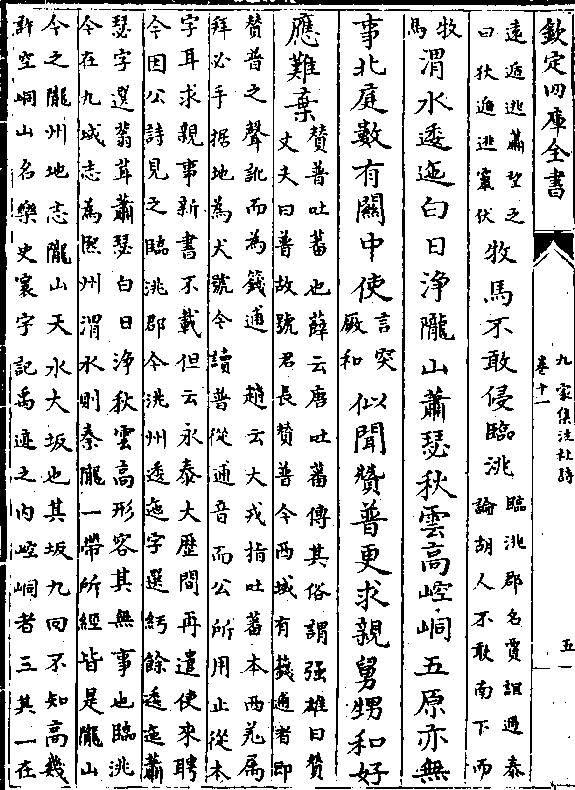 欽定四庫全書
九家集注杜詩
卷十一
五
遠遁逃蕭望之
曰狄遁逃竄伏
牧馬不敢侵臨洮
臨洮郡名賈誼過秦
論胡人不敢南下而
牧
馬
渭水逶迤白日浄隴山蕭瑟秋雲高崆峒五原亦無
事北庭數有闗中使
言突
厥和
似聞贊普更求親舅甥和好
應難棄
贊普吐蕃也薛云唐吐蕃傳其俗謂强雄曰贊
丈夫曰普故號君長贊普今西域有籛逋者即
贊普之聲訛而為籛逋 趙云大戎指吐蕃本西羌属
拜必手据地為犬號今讀普從逋音而公所用止從本
字耳求親事新書不載但云永泰大歴間再遣使來聘
今因公詩見之臨洮郡今洮州逶迤字選紆餘逶迤蕭
瑟字選蓊茸蕭瑟白日浄秋雲高形容其無事也臨洮
今在九域志為熙州渭水則秦隴一帶所經皆是隴山
今之隴州地志隴山天水大坂也其坂九回不知高幾
許空峒山名樂史寰宇記禹迹之内崆峒者三其一在